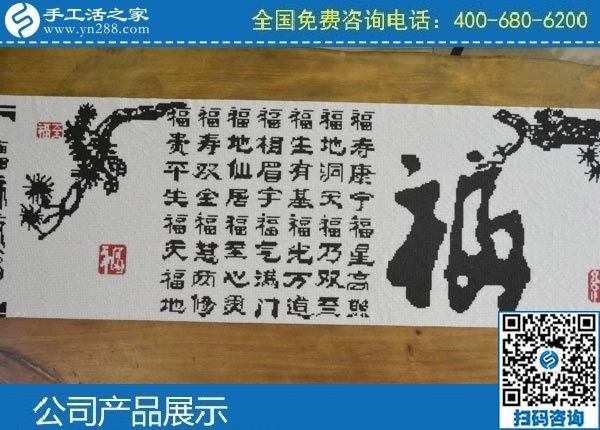 手工活之家
www.yn288.com
全国免费咨询电话：400-680-6200
福
福寿康宁福星高照
福地洞天福乃双至
福生有基福光万道
福相眉宇福气满门
福地仙居福至心灵
福寿双全福慧两修
福贵平生福天福地
福
公司产品展示
扫码咨询